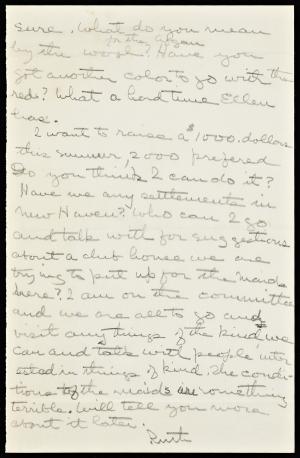 sure. What do you mean
by the wough? Have you
got another color to go with the
red? What a hard time Ellen
has.
I want to raise a $1000. dollars
this summer, 2000 prefered
Do you think I can do it?
Have we any settlements in
New Haven? Who can I go
and talk with for suggestions
about a club house we are
trying to put up for the maids
here? I am on the committee
and we are all to go and
visit any things of the kind we
can and talk with people inter
ested in things of kind. The condi-
tions of the maids are something
terrible. Will tell you more
about it later.
Ruth